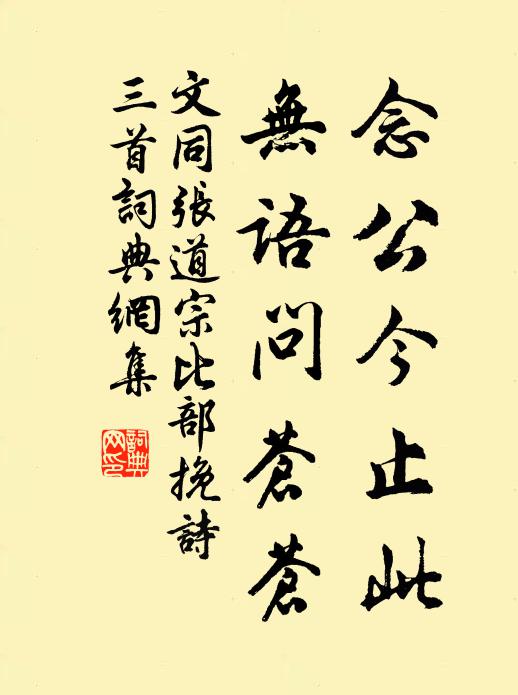 念公今止此
無語問蒼蒼
文同張道宗比部挽詩
三首詞典網集
詞典网印